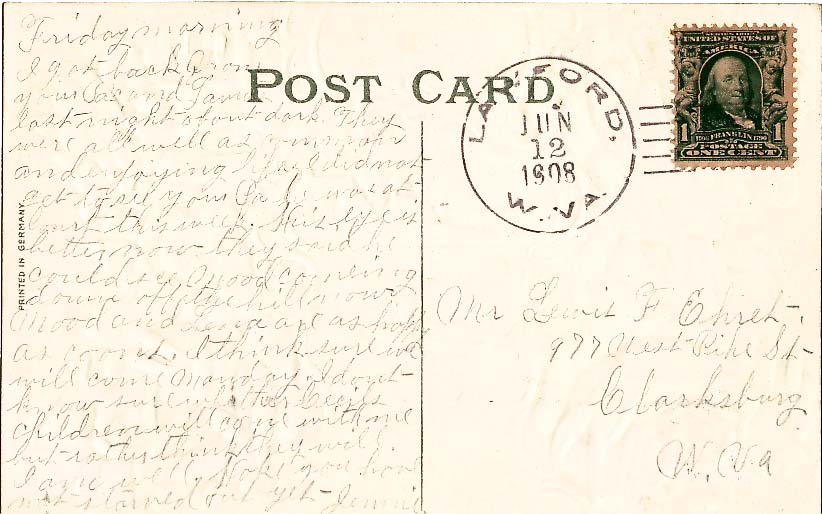 POST CARD
PRINTED IN GERMANY
Friday morning
I got back from
your Pa and
last night about dark. They
were all well as common
and enjoying life I did not
get to see your Pa he was at
court this week. His eye is
better now they said he
could see Mood comeing
down off the hill now
Mood and Lena are as happy
as coons. I think sure we
will come Monday. I dont
know sure wether Cecils
children will come with me
but rather think they will.
I am well. Hope you have
not starved out yet - Jennie
LANTFORD,
JUN
12
1908
W. VA.
SERIES 1902
UNITED STATES OF
AMERICA
1706 FRANKLIN 1790
1 POSTAGE 1
ONE CENT
Mr Lewis F Ehret.
977 West Pike St
Clarksburg
W. Va